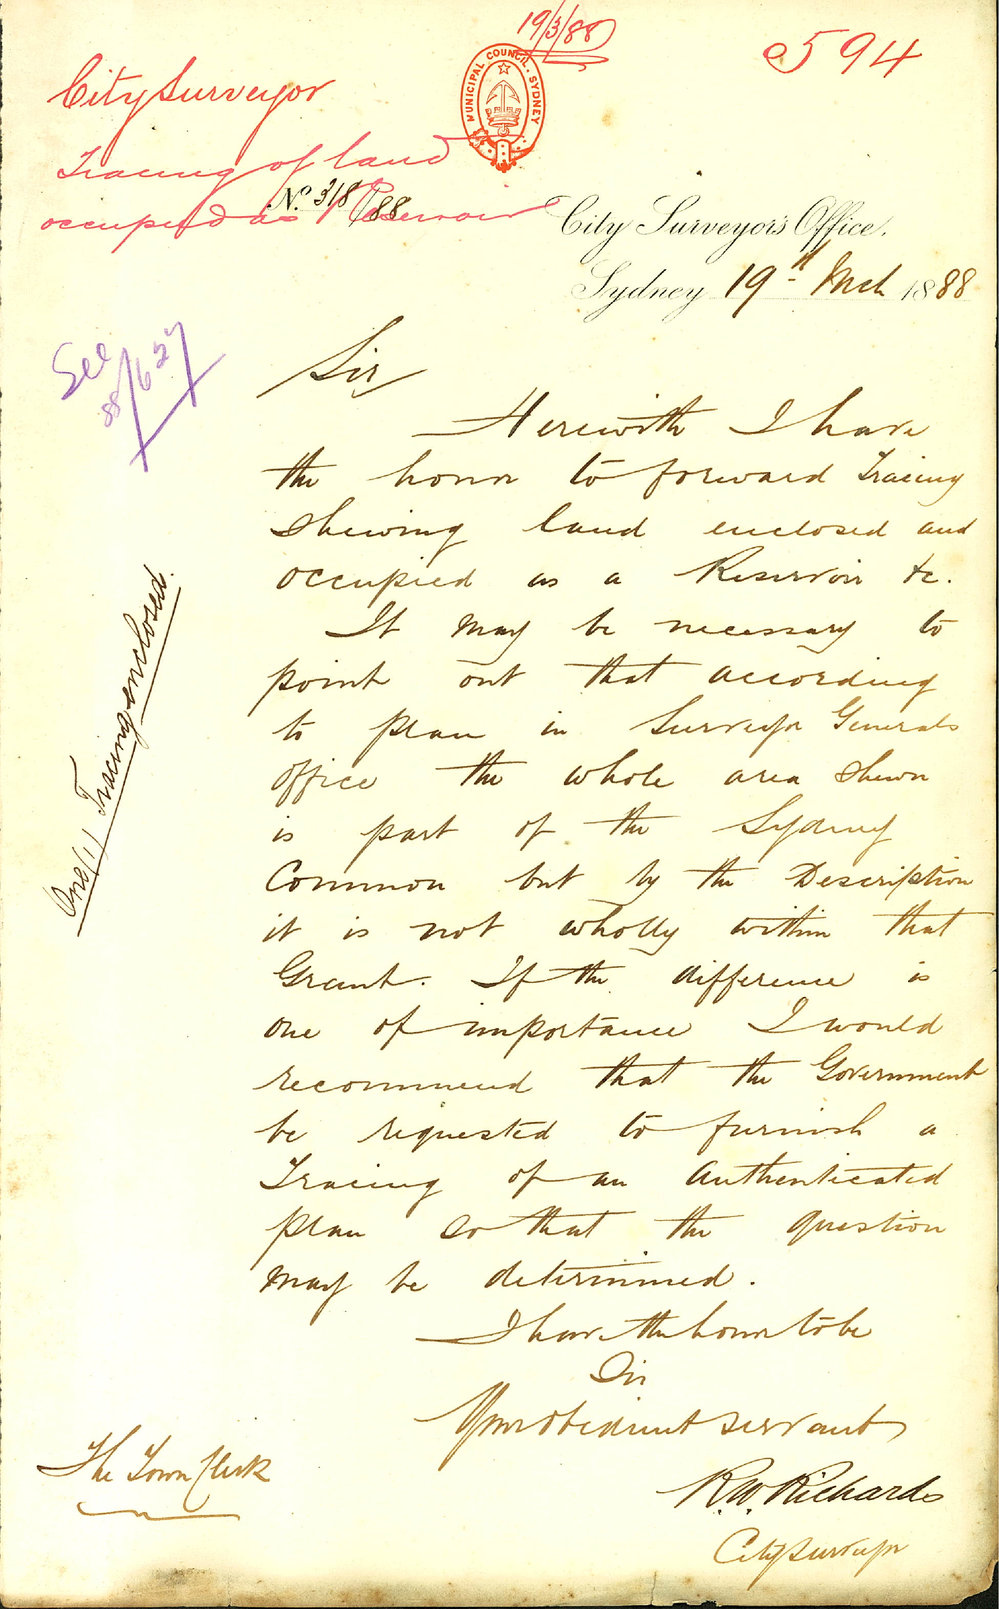 19/3/88
0594
MUNICIPAL COUNCIL. SYDNEY
City Surveyor
Tracing of land
occupied as Reservoir
No. 318/88
City Surveyor's Office,
Sydney 19th Mch 1888
See
88/627
Sir
Herewith I have
the honor to forward Tracing
shewing land enclosed and
occupied as a Reservoir &c.
It may be necessary to
point out that according
to plan in Surveyor Generals
office the whole area shewn
is part of the Sydney
Common but by the Description
it is not wholly within that
Grant. If the difference is
one of importance I would
recommend that the Government
be requested to furnish a
Tracing of an authenticated
plan so that the question
may be determined.
I have the honor to be
Sir
Your obedient servant
R.W. Richards
City Surveyor
The Town Clerk
One (1) Tracing enclosed.